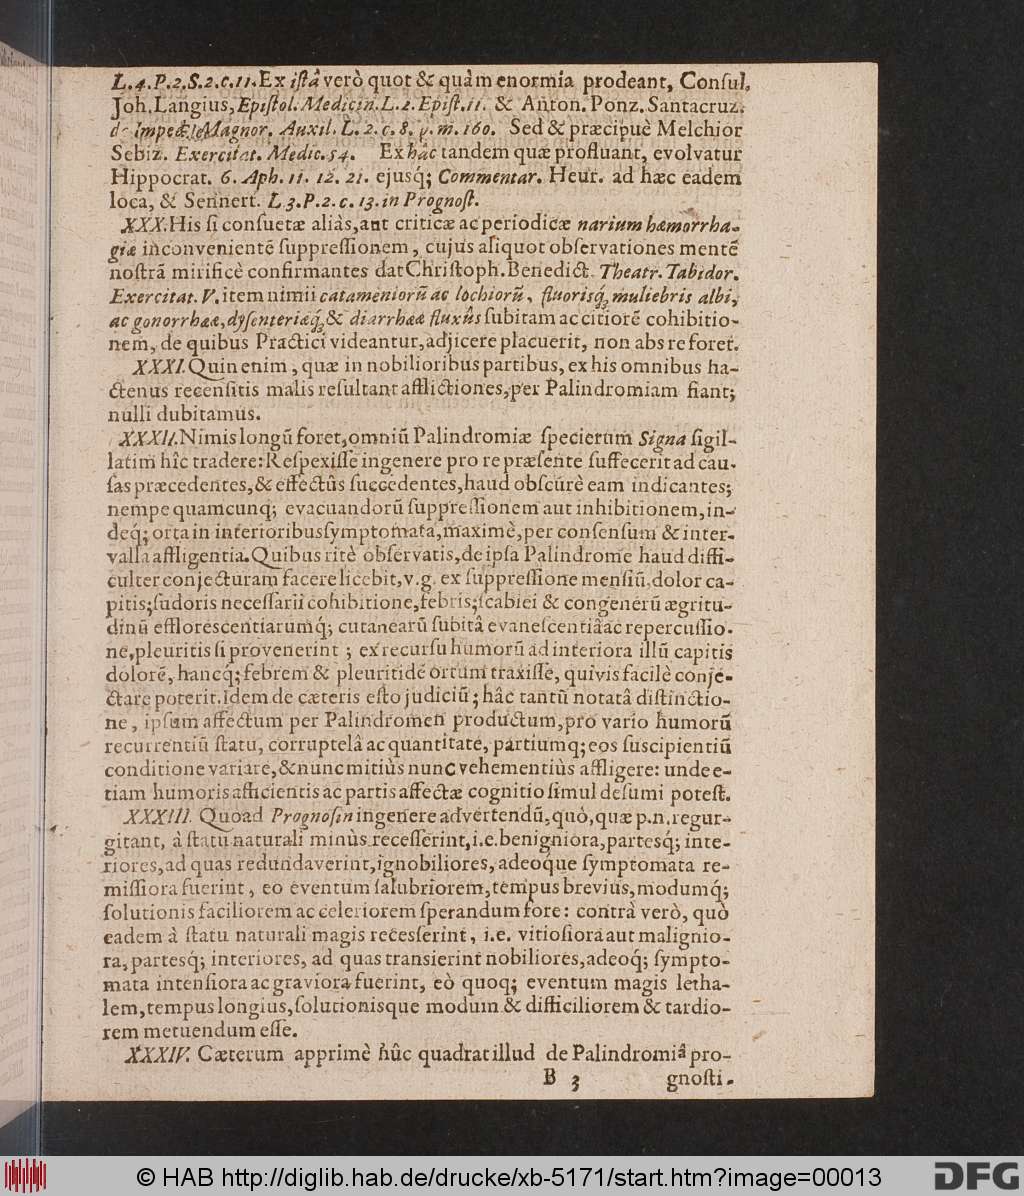 L.4.P.2.S.2.c.11. Ex iſtâ verò quot & quàm enormia prodeant, Conſul,
Joh. Langius, Epiſtol. Medicin. L.2. Epiſt. 11. & Anton. Ponz. Santacruz.
de Imped. Magnor. Auxil. L. 2. c. 8. p. m. 160. Sed & præcipuè Melchior
Sebiz. Exercitat. Medic. 54. Ex hâc tandem quæ profluant, evolvatur
Hippocrat. 6. Aph. 11. 12. 21. ejusq́; Commentar. Heur. ad hæc eadem
loca, & Sennert. L 3. P. 2. c. 13. in Prognoſt.
XXX. His ſi conſuetæ aliàs, aut criticæ ac periodicæ narium hæmorrha-
giæ inconvenientē ſuppreſſionem, cujus aliquot obſervationes mentē
noſtrā mirificè confirmantes dat Chriſtoph. Benedict. Theatr. Tabidor.
Exercitat. V. item nimii catameniorū ac lochiorū, fluorisq́, muliebris albi,
ac gonorrhææ, dyſenteriæq́, & diarrhææ fluxûs ſubitam ac citiorē cohibitio-
nem, de quibus Practici videantur, adjicere placuerit, non abs re foret.
XXXI. Quin enim, quæ in nobilioribus partibus, ex his omnibus ha-
ctenus recenſitis malis reſultant afflictiones, per Palindromiam fiant;
nulli dubitamus.
XXXII. Nimis longū foret, omniū Palindromiæ ſpecierum Signa ſigil-
latim hîc tradere: Reſpexiſſe in genere pro re præſente ſuffecerit ad cau-
ſas præcedentes, & effectûs ſuccedentes, haud obſcurè eam indicantes;
nempe quamcunq; evacuandorū ſuppreſſionem aut inhibitionem, in-
deq́; orta in interioribus ſymptomata, maximè, per conſenſum & inter-
valla affligentia. Quibus ritè obſervatis, de ipſa Palindrome haud diffi-
culter conjecturam facere licebit, v.g. ex ſuppreſſione menſiū, dolor ca-
pitis; ſudoris neceſſarii cohibitione, febris; ſcabiei & congenerū ægritu-
dinū effloreſcentiarumq́; cutanearū ſubitâ evaneſcentiâ ac repercuſſio-
ne, pleuritis ſi provenerint; ex recurſu humorū ad interiora illū capitis
dolorē, hancq́; febrem & pleuritidē ortum traxiſſe, quivis facilè conje-
ctare poterit. Idem de cæteris eſto judiciū; hâc tantū notatâ diſtinctio-
ne, ipſum affectum per Palindromen productum, pro vario humorū
recurrentiū ſtatu, corruptelâ ac quantitate, partiumq; eos ſuſcipientiū
conditione variare, & nunc mitiùs nunc vehementiùs affligere: unde e-
tiam humoris afficientis ac partis affectæ cognitio ſimul deſumi poteſt.
XXXIII. Quoad Prognoſin in genere advertendū, quò, quæ p.n. regur-
gitant, à ſtatu naturali minùs receſſerint, i.e. benigniora, partesq́; inte-
riores, ad quas redundaverint, ignobiliores, adeoque ſymptomata re-
miſſiora fuerint, eo eventum ſalubriorem, tempus brevius, modumq́;
ſolutionis faciliorem ac celeriorem ſperandum fore: contrà verò, quò
eadem à ſtatu naturali magis recesſerint, i.e. vitioſiora aut malignio-
ra, partesq́; interiores, ad quas tranſierint nobiliores, adeoq́; ſympto-
mata intenſiora ac graviora fuerint, eò quoq; eventum magis letha-
lem, tempus longius, ſolutionisque modum & difficiliorem & tardio-
rem metuendum eſſe.
XXXIV. Cæterum apprimè hûc quadrat illud de Palindromiâ pro-
B 3 gnoſti-
© HAB http://diglib.hab.de/drucke/xb-5171/start.htm?image=00013
DFG